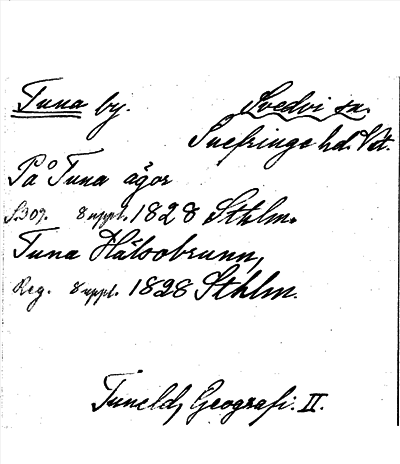 Tuna by. Svedvi sn.
Snefringe hd. Vstm.
På Tuna ägor
S. 309. 8 uppl. 1828 Sthlm.
Tuna Hälsobrunn,
Reg. 8 uppl. 1828 Sthlm.
Tuneld, Geografi. II.